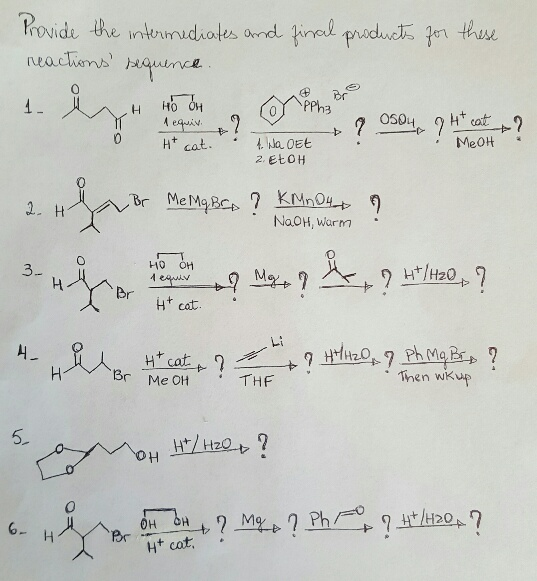 Provide the intermediates and final products for these
reactions' sequence.
1- O H O HO OH 1 equiv. H+ cat. ? PPh3 ⊕ Br⊖ 1. NaOEt 2. EtOH ? OSO4 ? H+ cat MeOH ?
2- H O Br MeMgBr ? KMnO4 NaOH, warm ?
3- H O Br HO OH 1 equiv H+ cat. ? Mg ? O ? H+/H2O ?
4- H O Br H+ cat MeOH ? Li THF ? H+/H2O ? PhMgBr Then wkup ?
5- O O OH H+/H2O ?
6- H O Br OH OH H+ cat. ? Mg ? Ph O ? H+/H2O ?